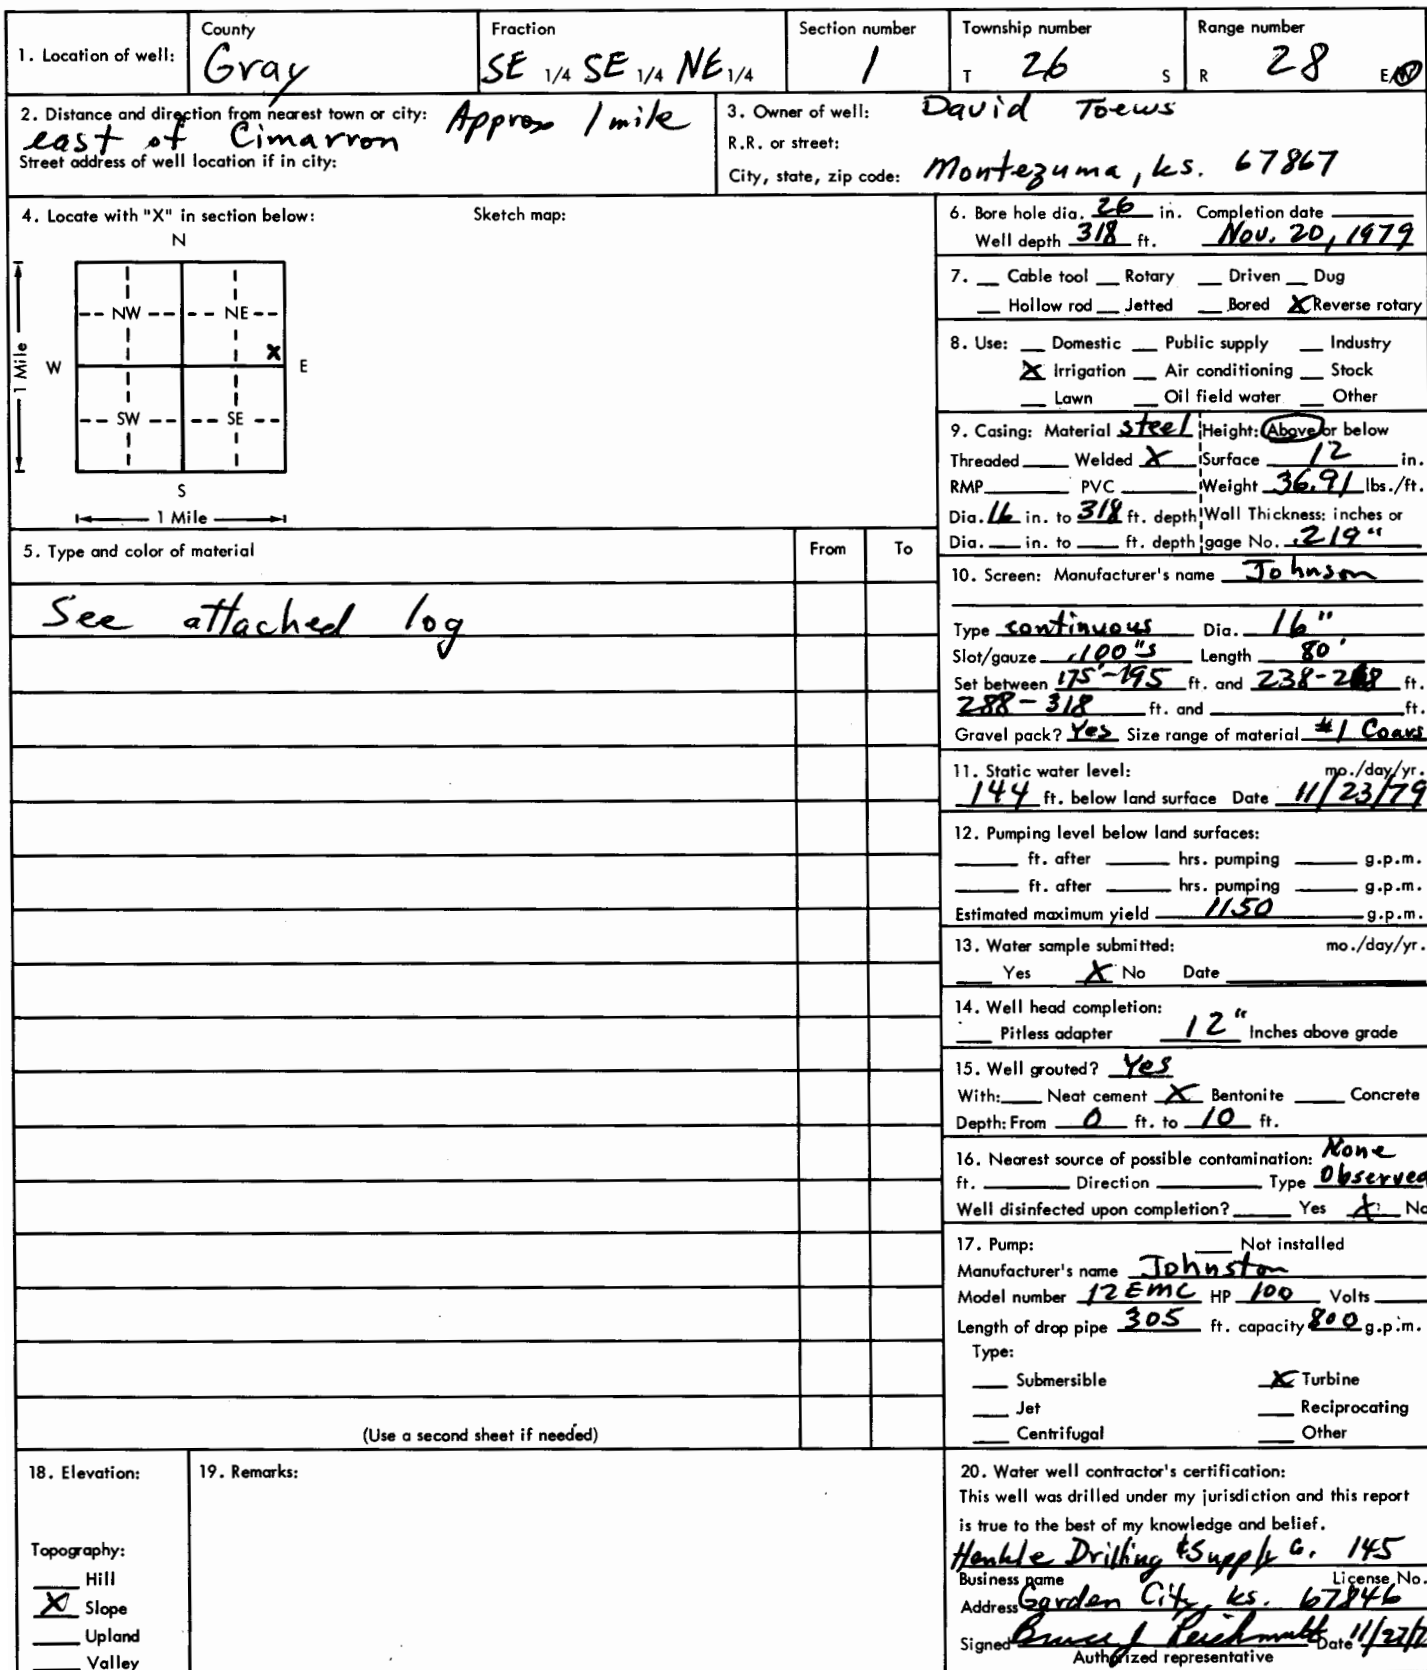 1. Location of well:
County
Gray
Fraction
SE 1/4 SE 1/4 NE 1/4
Section number
1
Township number
T 26 S
Range number
R 28 E/W
2. Distance and direction from nearest town or city: Approx 1 mile
east of Cimarron
Street address of well location if in city:
3. Owner of well: David Toews
R.R. or street:
City, state, zip code: Montezuma, ks. 67867
4. Locate with "X" in section below:
Sketch map:
N
NW NE
X
W E
1 Mile
SW SE
S
1 Mile
5. Type and color of material From To
See attached log
(Use a second sheet if needed)
6. Bore hole dia. 26 in. Completion date
Well depth 318 ft. Nov. 20, 1979
7. Cable tool Rotary Driven Dug
Hollow rod Jetted Bored X Reverse rotary
8. Use: Domestic Public supply Industry
X Irrigation Air conditioning Stock
Lawn Oil field water Other
9. Casing: Material steel Height: Above or below
Threaded Welded X Surface 12 in.
RMP PVC Weight 36.91 lbs./ft.
Dia. 16 in. to 318 ft. depth Wall Thickness: inches or
Dia. in. to ft. depth gage No. .219"
10. Screen: Manufacturer's name Johnson
Type continuous Dia. 16"
Slot/gauze .100"s Length 80'
Set between 175'-195 ft. and 238- ft.
288-318 ft. and ft.
Gravel pack? Yes Size range of material #1 Coars
11. Static water level: mo./day/yr.
144 ft. below land surface Date 11/23/79
12. Pumping level below land surfaces:
ft. after hrs. pumping g.p.m.
ft. after hrs. pumping g.p.m.
Estimated maximum yield 1150 g.p.m.
13. Water sample submitted: mo./day/yr.
Yes X No Date
14. Well head completion:
Pitless adapter 12" Inches above grade
15. Well grouted? Yes
With: Neat cement X Bentonite Concrete
Depth: From 0 ft. to 10 ft.
16. Nearest source of possible contamination: None
ft. Direction Type Observed
Well disinfected upon completion? Yes X No
17. Pump: Not installed
Manufacturer's name Johnston
Model number 12EMC HP 100 Volts
Length of drop pipe 305 ft. capacity 800 g.p.m.
Type:
Submersible X Turbine
Jet Reciprocating
Centrifugal Other
18. Elevation:
Topography:
Hill
X Slope
Upland
Valley
19. Remarks:
20. Water well contractor's certification:
This well was drilled under my jurisdiction and this report
is true to the best of my knowledge and belief.
Henkle Drilling & Supply Co. 145
Business name License No.
Address Garden City, ks. 67846
Signed Bruce J Date
Authorized representative